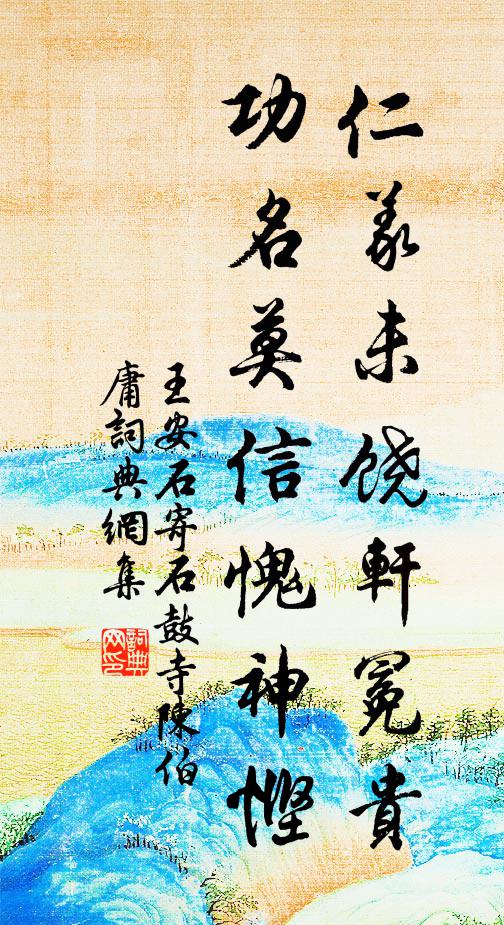 仁義未饶軒冕貴
功名莫信愧神慳
王安石寄石鼓寺陳伯
庸詞典網集
詞典
网印